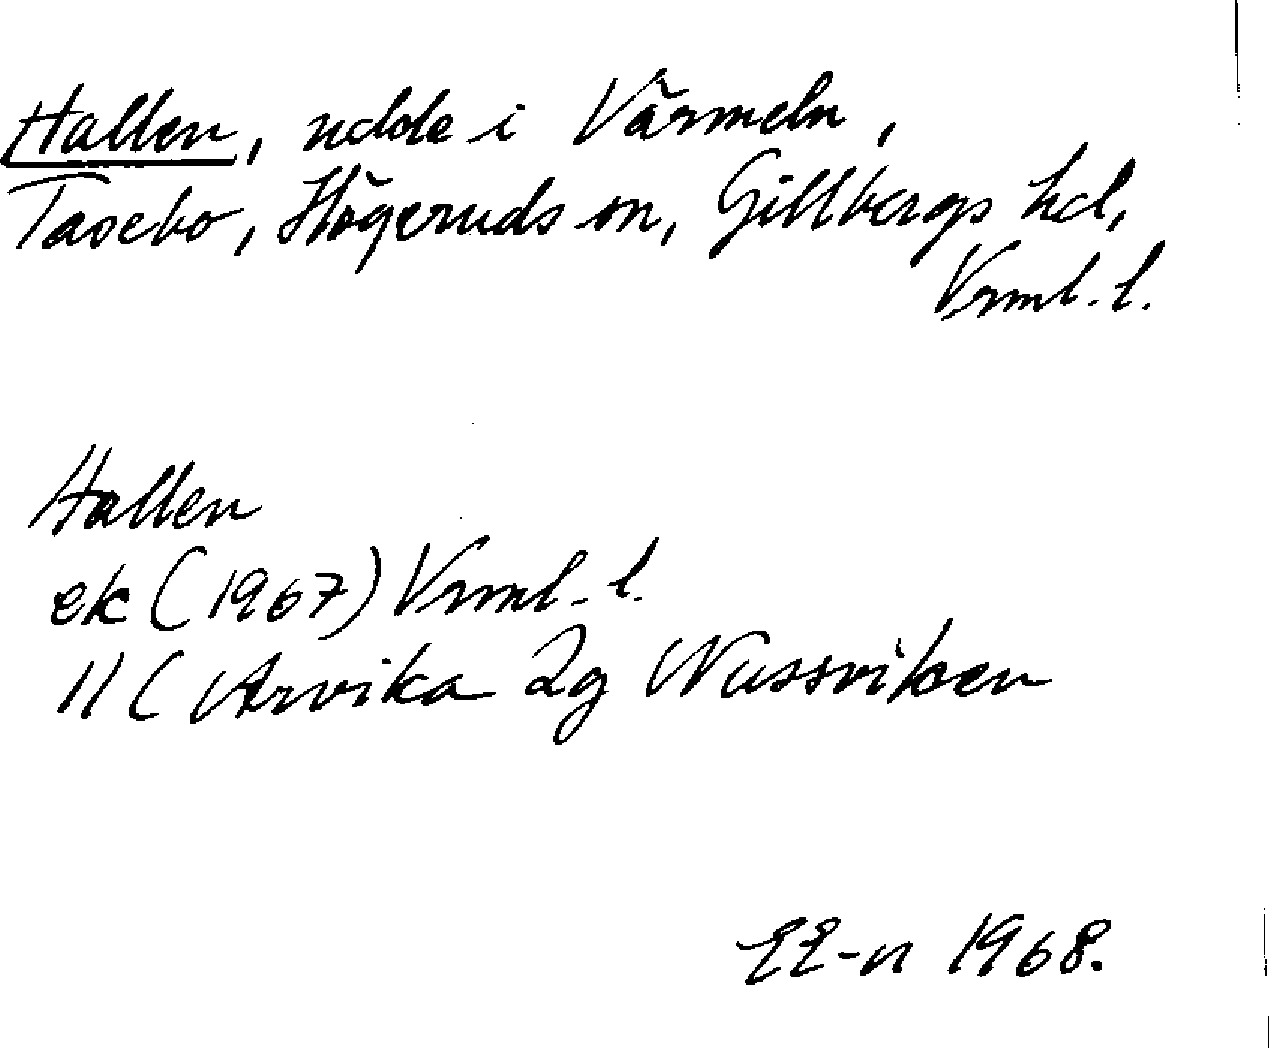 Hallen, udde i Värmeln,
Tasebo, Högeruds sn, Gillbergs hd,
Vrml. l.
Hallen
ek (1967) Vrml. l.
11C Arvika 2g Nussviken
EE-n 1968.